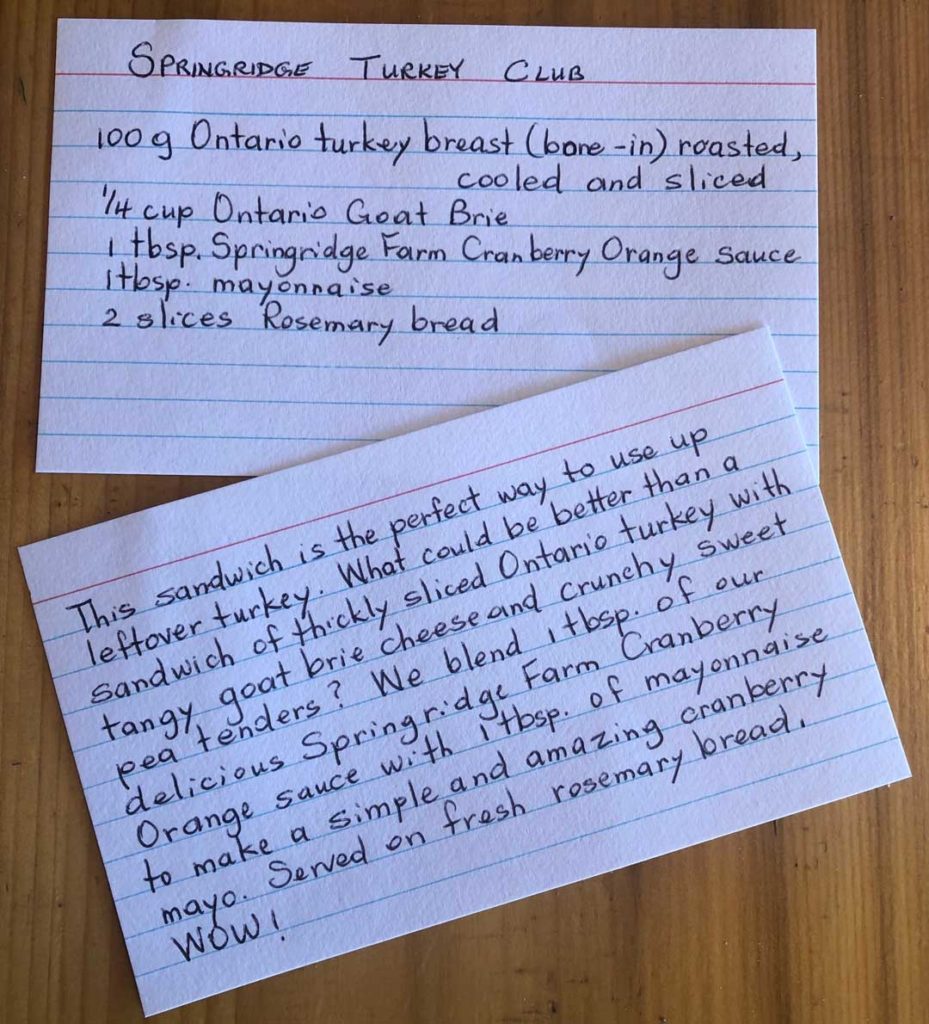 SPRINGRIDGE TURKEY CLUB
100 g Ontario turkey breast (bone-in) roasted,
cooled and sliced
1/4 cup Ontario Goat Brie
1 tbsp. Springridge Farm Cranberry Orange sauce
1 tbsp. mayonnaise
2 slices Rosemary bread
This sandwich is the perfect way to use up
leftover turkey. What could be better than a
sandwich of thickly sliced Ontario turkey with
tangy goat brie cheese and crunchy sweet
pea tenders? We blend 1 tbsp. of our
delicious Springridge Farm Cranberry
Orange sauce with 1 tbsp. of mayonnaise
to make a simple and amazing cranberry
mayo. Served on fresh rosemary bread.
WOW!